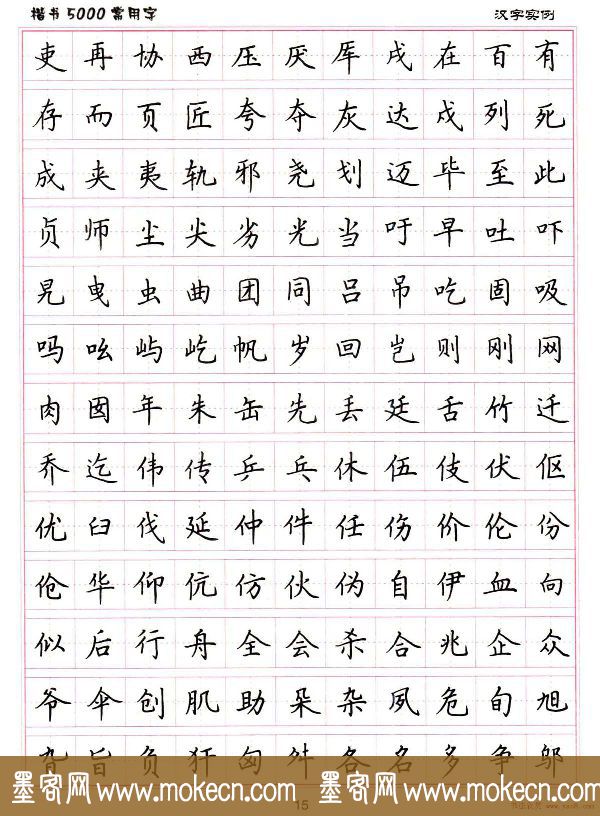 楷书5000常用字 汉字实例
吏再协西压厌厍戌在百有
存而页匠夸夺灰达戍列死
成夹夷轨邪尧划迈毕至此
贞师尘尖劣光当吁早吐吓
晃曳虫曲团同吕吊吃固吸
吗吆屿屹帆岁回岂则刚网
肉囡年朱缶先丢廷舌竹迁
乔迄伟传乒乓休伍伎伏伛
优臼伐延仲件任伤价伦份
伧华仰伉仿伙伪自伊血向
似后行舟全会杀合兆企众
爷伞创肌助朵杂夙危旬旭
旨负犴匈舛各名多争邬
墨客网 www.mokecn.com 墨客网 www.mokecn.com
15